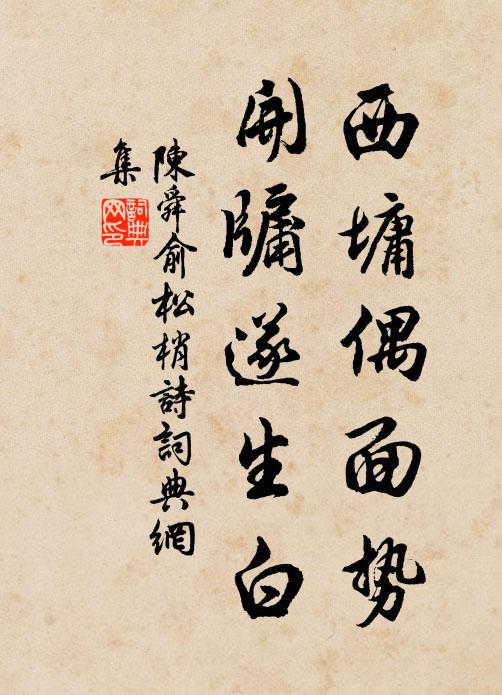 西墉偶面势
开牖遂生白
陳舜俞松梢詩詞典網
集
詞典网印